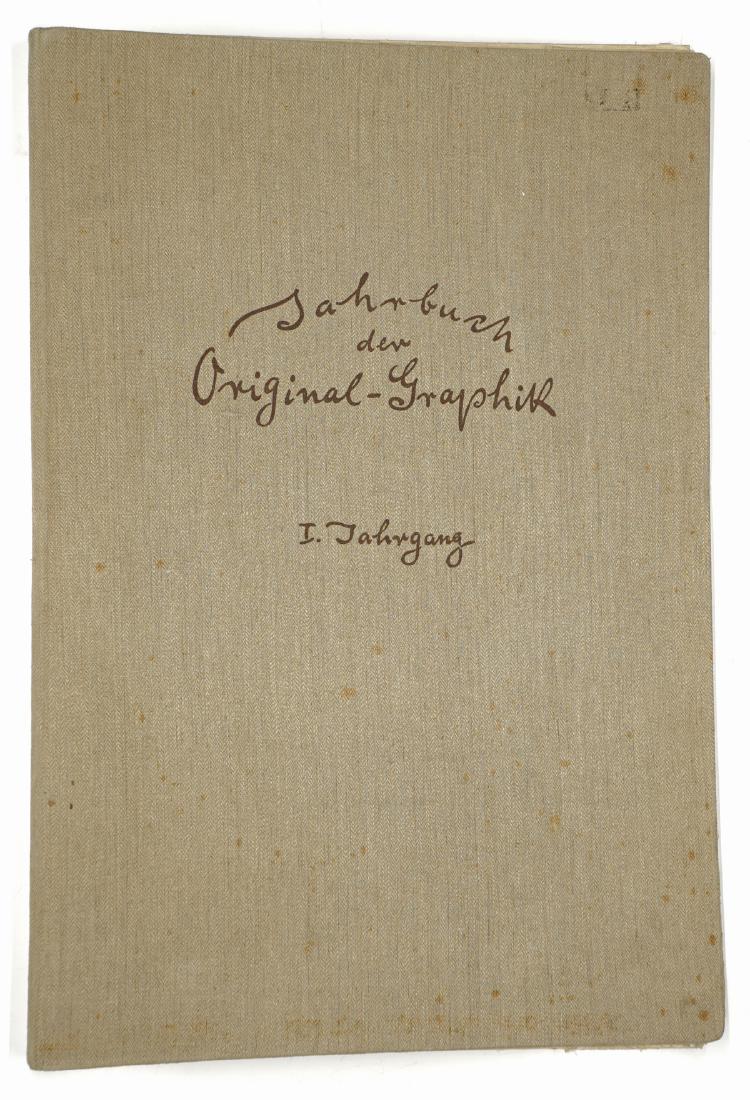 Jahrbuch
der
Original-Graphik
I. Jahrgang